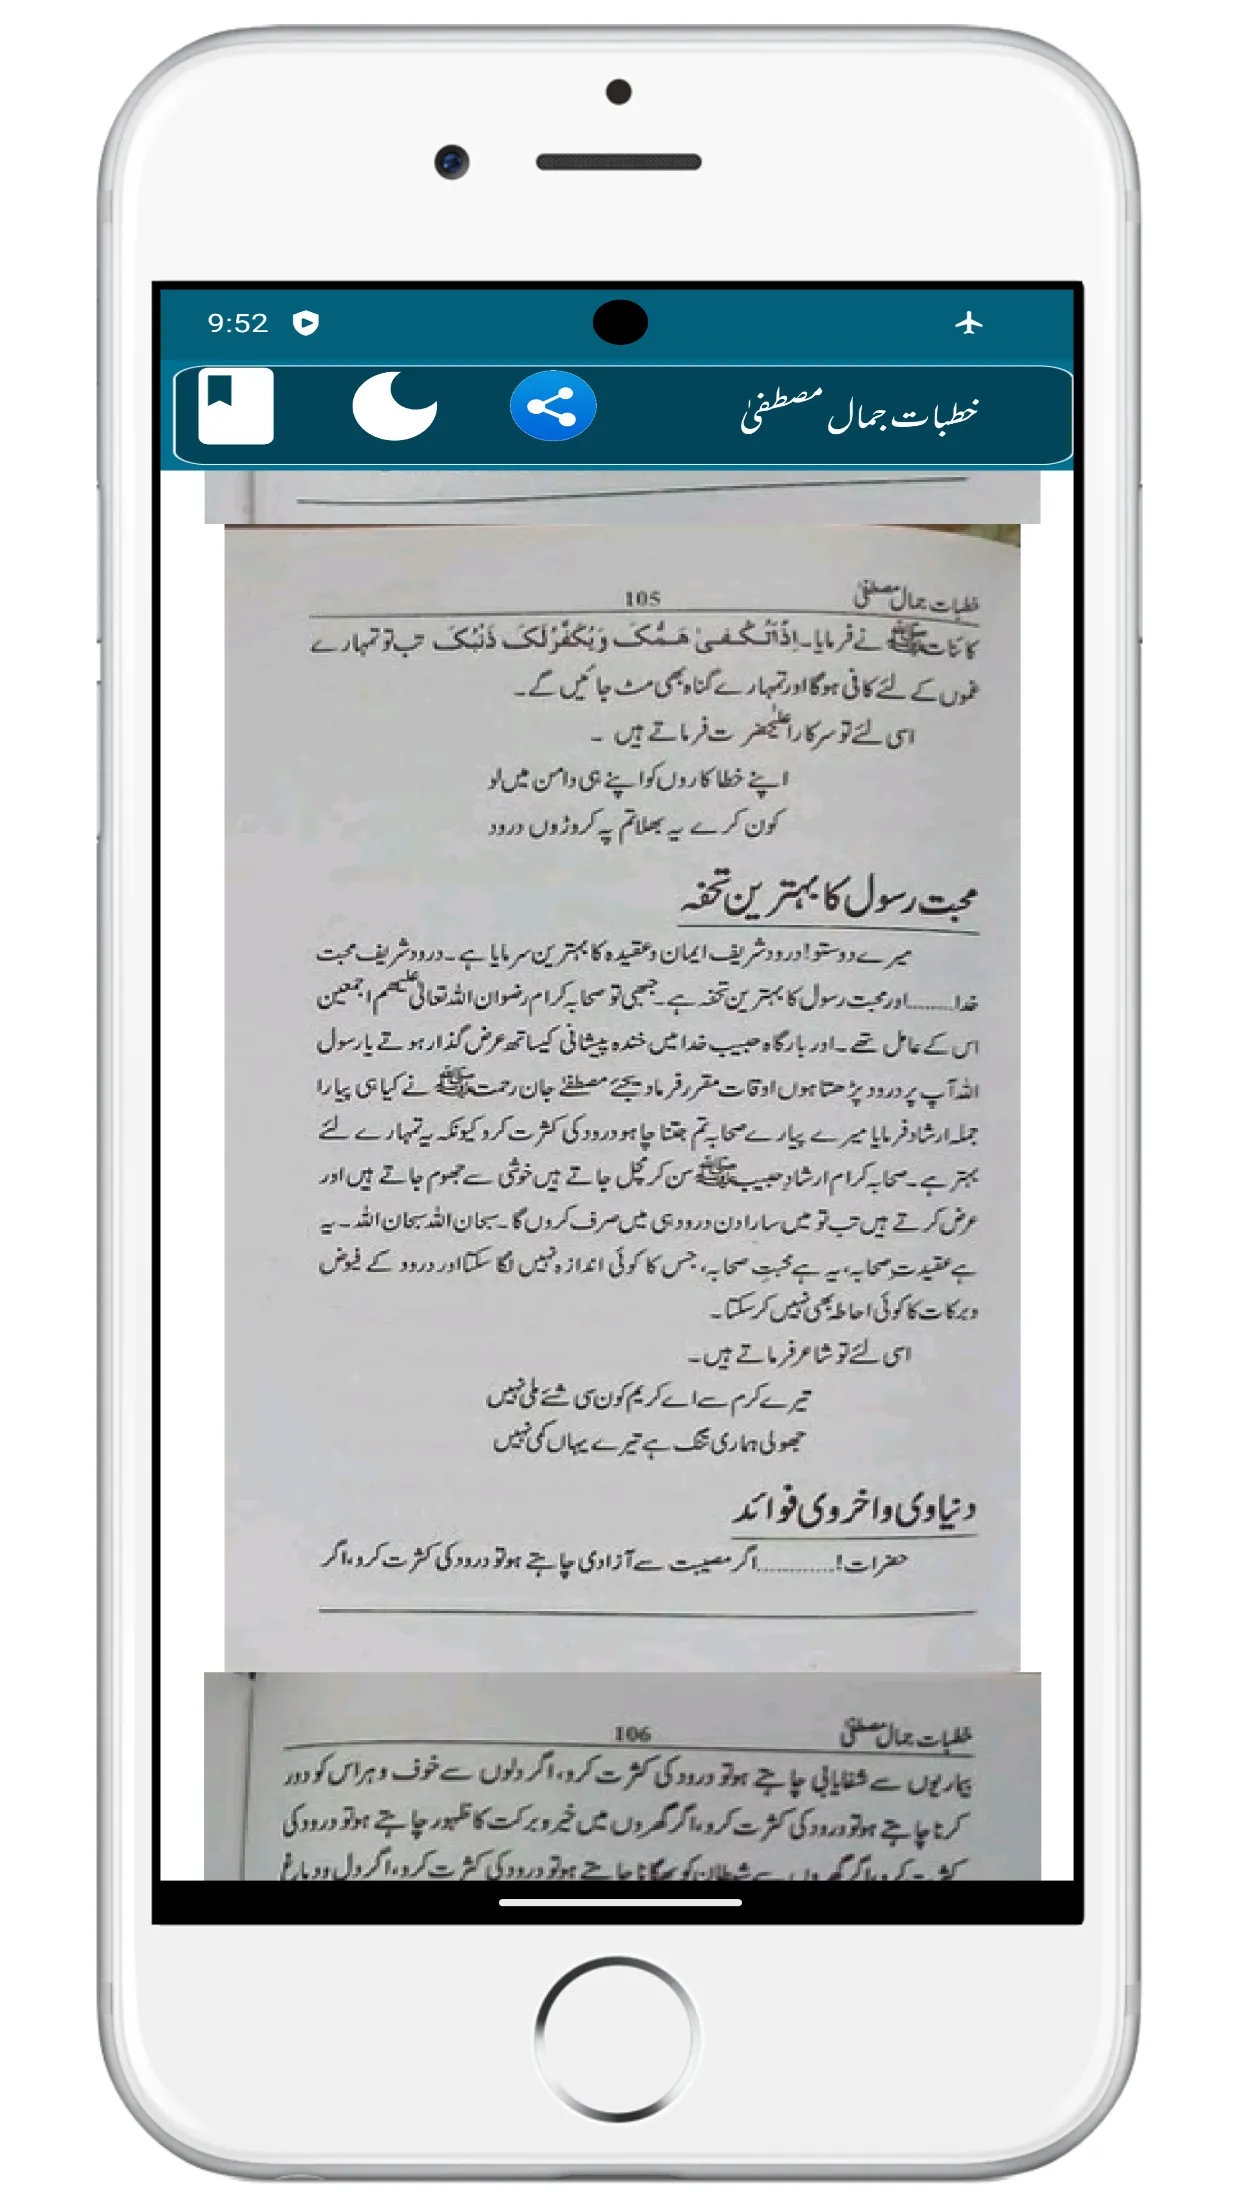 9:52
خطبات جمال مصطفیٰ
خطبات جمال مصطفیٰ 105
کائنات ﷺ نے فرمایا۔ اِذًا تُکْفٰی هَمُّکَ وَیُکَفَّرُ لَکَ ذَنْبُکَ تب تو تمہارے
غموں کے لئے کافی ہوگا اور تمہارے گناہ بھی مٹ جائیں گے۔
اسی لئے تو سرکار اعلیٰحضرت فرماتے ہیں ۔
اپنے خطا کاروں کو اپنے ہی دامن میں لو
کون کرے یہ بھلا تم پہ کروڑوں درود
محبت رسول کا بہترین تحفہ
میرے دوستو! درود شریف ایمان وعقیدہ کا بہترین سرمایا ہے۔ درود شریف محبت
خدا.........اور محبت رسول کا بہترین تحفہ ہے۔ جبھی تو صحابہ کرام رضوان اللہ تعالیٰ علیھم اجمعین
اس کے عامل تھے۔ اور بارگاہ حبیب خدا میں خندہ پیشانی کیساتھ عرض گذار ہوتے یا رسول
اللہ آپ پر درود پڑھتا ہوں اوقات مقرر فرما دیجئے مصطفےٰ جان رحمت ﷺ نے کیا ہی پیارا
جملہ ارشاد فرمایا میرے پیارے صحابہ تم جتنا چاہو درود کی کثرت کرو کیونکہ یہ تمہارے لئے
بہتر ہے۔ صحابہ کرام ارشادِ حبیب ﷺ سن کر مچل جاتے ہیں خوشی سے جھوم جاتے ہیں اور
عرض کرتے ہیں تب تو میں سارا دن درود ہی میں صرف کروں گا۔ سبحان اللہ سبحان اللہ ۔ یہ
ہے عقیدت صحابہ، یہ ہے محبتِ صحابہ، جس کا کوئی اندازہ نہیں لگا سکتا اور درود کے فیوض
وبرکات کا کوئی احاطہ بھی نہیں کر سکتا۔
اسی لئے تو شاعر فرماتے ہیں۔
تیرے کرم سے اے کریم کون سی شئے ملی نہیں
جھولی ہماری تنگ ہے تیرے یہاں کمی نہیں
دنیاوی و اخروی فوائد
حضرات!.............اگر مصیبت سے آزادی چاہتے ہو تو درود کی کثرت کرو، اگر
خطبات جمال مصطفیٰ 106
بیماریوں سے شفایابی چاہتے ہو تو درود کی کثرت کرو، اگر دلوں سے خوف و ہراس کو دور
کرنا چاہتے ہو تو درود کی کثرت کرو، اگر گھروں میں خیر و برکت کا ظہور چاہتے ہو تو درود کی
کثرت کرو، اگر گھروں سے شیطان کو بھگانا چاہتے ہو تو درود کی کثرت کرو، اگر دل و دماغ